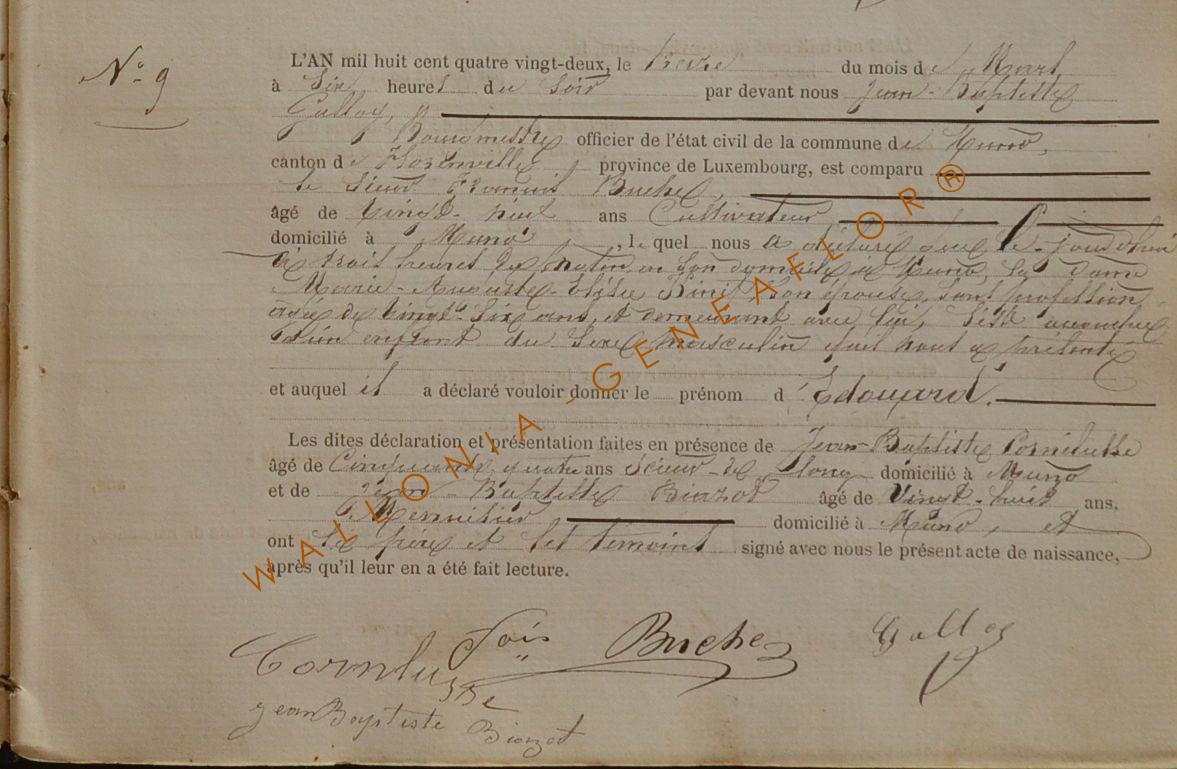 N° 9
L'AN mil huit cent quatre vingt-deux, le treize du mois de Mars
à Six heures du Soir par devant nous Jean-Baptiste
Galloy,
Bourgmestre officier de l'état civil de la commune de Muno,
canton de Florenville province de Luxembourg, est comparu
le Sieur François Buche,
âgé de vingt-huit ans Cultivateur
domicilié à Muno, lequel nous a déclaré que le jour d'hier
à trois heures du matin en son domicile à Muno, la dame
Marie-Auguste-Elisée Sinet, son épouse, sans profession,
âgée de vingt-six ans, et demeurant avec lui, s'est accouchée
d'un enfant du sexe masculin qu'il nous a présenté
et auquel il a déclaré vouloir donner le prénom d'Edouard.
Les dites déclaration et présentation faites en présence de Jean-Baptiste Cornelusse
âgé de Cinquante quatre ans Scieur-de-long domicilié à Muno
et de Jean-Baptiste Bionzot âgé de Vingt-huit ans,
Menuisier domicilié à Muno, et
ont le père et les témoins signé avec nous le présent acte de naissance,
après qu'il leur en a été fait lecture.
Fois Buche Galloy
Cornelusse
Jean Baptiste Bionzot
WALLONIA-GENEAFLOR®